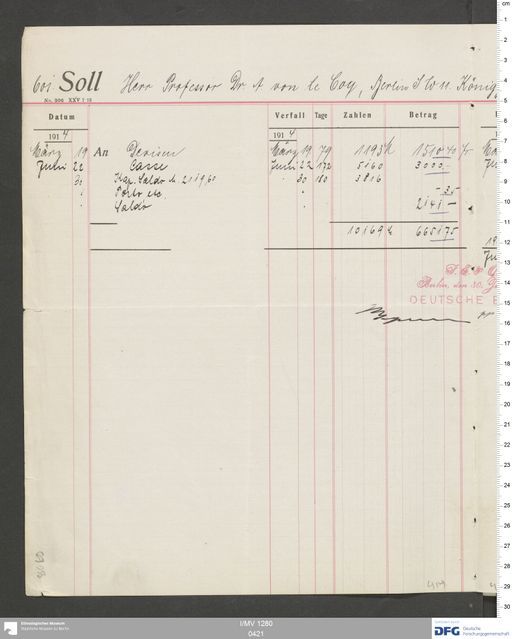 601 Soll Herr Professor Dr A von le Coq, Berlin S.W 11. König
No. 906 XXV 7 13
Datum Verfall Tage Zahlen Betrag
1914 1914
März 19 An Devisen März 19 79 1193 1510 40
Juni 22 Casse Juni 22 172 5160 3000 –
30 Kap. Saldo 30 180 3816
Porto etc – 35
Saldo 2141 –
10169 6651 75
Berlin, den 30.
DEUTSCHE B
I/MV 1260
0421
Ethnologisches Museum
Staatliche Museen zu Berlin
DFG Deutsche
Forschungsgemeinschaft